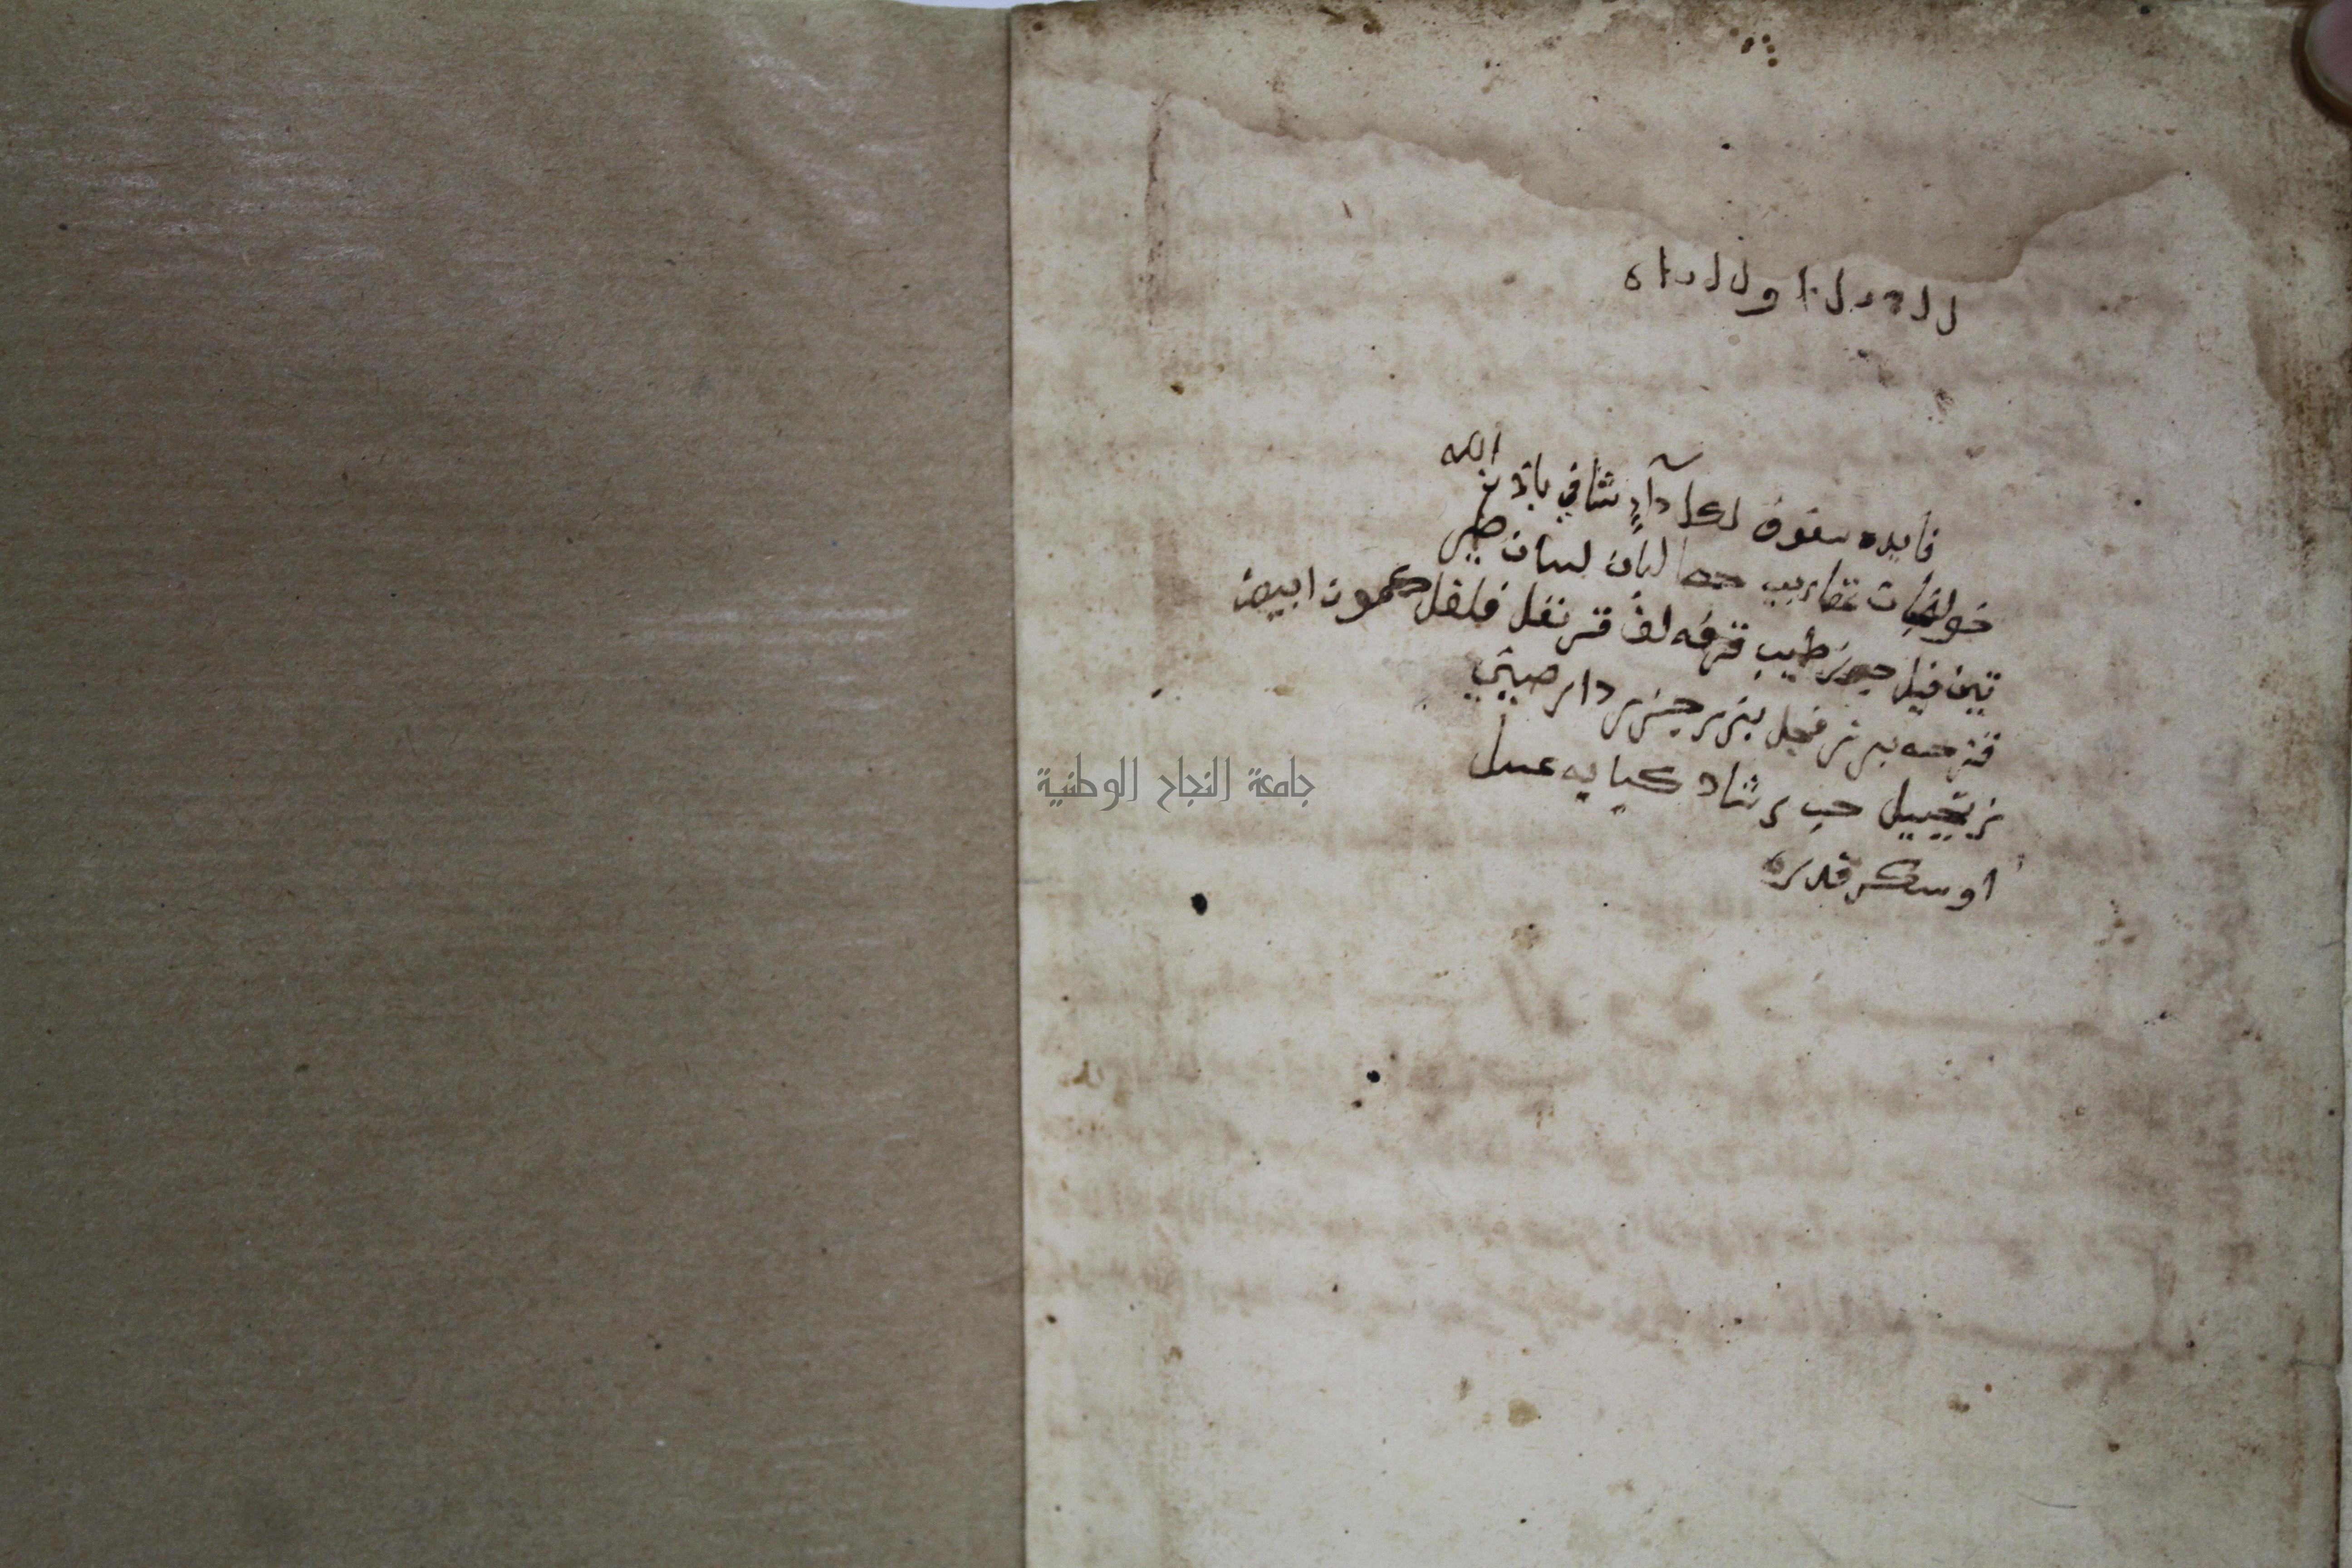 فايده سفوف لكل دآءٍ شافي باذن الله
خولنجان عقاريب حصا لبان لسان طير
تين فيل جوز طيب قرفه لف قرنفل فلفل كمون ابيض
قزحه بزر فجل بزر جزر دار صيني
زنجبيل حب رشاد كبابه عسل
او سكر قدره
جامعة النجاح الوطنية